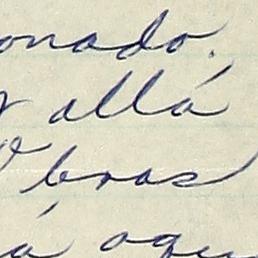 onado.
y allá
Obras
á aqu